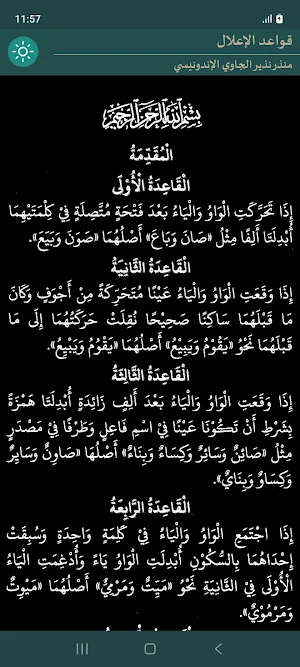 11:57
قواعد الإعلال
منذر نذير الجاوي الإندونيسي
بِسْمِ اللهِ الرَّحْمٰنِ الرَّحِيْمِ
الْمُقَدِّمَةُ
الْقَاعِدَةُ الْأُوْلَى
إِذَا تَحَرَّكَتِ الْوَاوُ وَالْيَاءُ بَعْدَ فَتْحَةٍ مُتَّصِلَةٍ فِيْ كِلْمَتَيْهِمَا
أُبْدِلَتَا أَلِفًا مِثْلُ «صَانَ وَبَاعَ» أَصْلُهُمَا «صَوَنَ وَبَيَعَ».
الْقَاعِدَةُ الثَّانِيَةُ
إِذَا وَقَعَتِ الْوَاوُ وَالْيَاءُ عَيْنًا مُتَحَرِّكَةً مِنْ أَجْوَفٍ وَكَانَ
مَا قَبْلَهُمَا سَاكِنًا صَحِيْحًا نُقِلَتْ حَرَكَتُهُمَا إِلَى مَا
قَبْلَهُمَا نَحْوُ «يَقُوْمُ وَيَبِيْعُ» أَصْلُهُمَا «يَقْوُمُ وَيَبْيِعُ».
الْقَاعِدَةُ الثَّالِثَةُ
إِذَا وَقَعَتِ الْوَاوُ وَالْيَاءُ بَعْدَ أَلِفٍ زَائِدَةٍ أُبْدِلَتَا هَمْزَةً
بِشَرْطِ أَنْ تَكُوْنَا عَيْنًا فِيْ اسْمِ فَاعِلٍ وَطَرْفًا فِيْ مَصْدَرٍ
مِثْلُ «صَائِنٌ وَسَائِرٌ وَكِسَاءٌ وَبِنَاءٌ» أَصْلُهَا «صَاوِنٌ وَسَايِرٌ
وَكِسَاوٌ وَبِنَايٌ».
الْقَاعِدَةُ الرَّابِعَةُ
إِذَا اجْتَمَعَ الْوَاوُ وَالْيَاءُ فِيْ كَلِمَةٍ وَاحِدَةٍ وَسُبِقَتْ
إِحْدَاهُمَا بِالسُّكُوْنِ أُبْدِلَتِ الْوَاوُ يَاءً وَأُدْغِمَتِ الْيَاءُ
الْأُوْلَى فِيْ الثَّانِيَةِ نَحْوُ «مَيِّتٌ وَمَرْمِيٌّ» أَصْلُهُمَا «مَيْوِتٌ
وَمَرْمُوْيٌ».